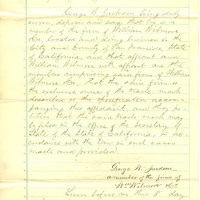 George W. Jackson being duly
sworn, deposes and says that he is a
member of the firm of William Wolmore
& Co. located and doing business in the
City and County of San Francisco, State
of California, and that affiant and
William Wolmore
members comprising said firm of William
& Co. that the said firm is
the exclusive owner of the trade-mark
described in the specification
annexed to this affidavit, and they
that the said trade-mark may
be placed in the office of the Secretary of
State of the State of California in
accordance with the law in such cases
made and provided.
George W. Jackson
a member of the firm of
Wm Wolmore & Co
before me this 8 day